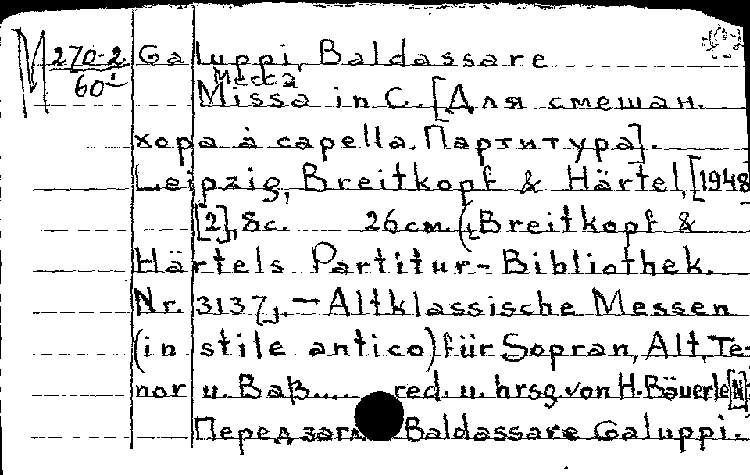 М 270-2 Galuppi, Baldassare
60 Месса
Missa in C. [Для смешан.
хора à capella. Партитура].
Leipzig, Breitkopf & Härtel, [1948
[2], 8с. 26 см. (Breitkopf &
Härtels Partitur-Bibliothek.
Nr. 3137). — Altklassische Messen
(in stile antico) für Sopran, Alt, Te-
nor u. Baß..... red. u. hrsg. von H. Bäuerle
Перед загл. Baldassare Galuppi.